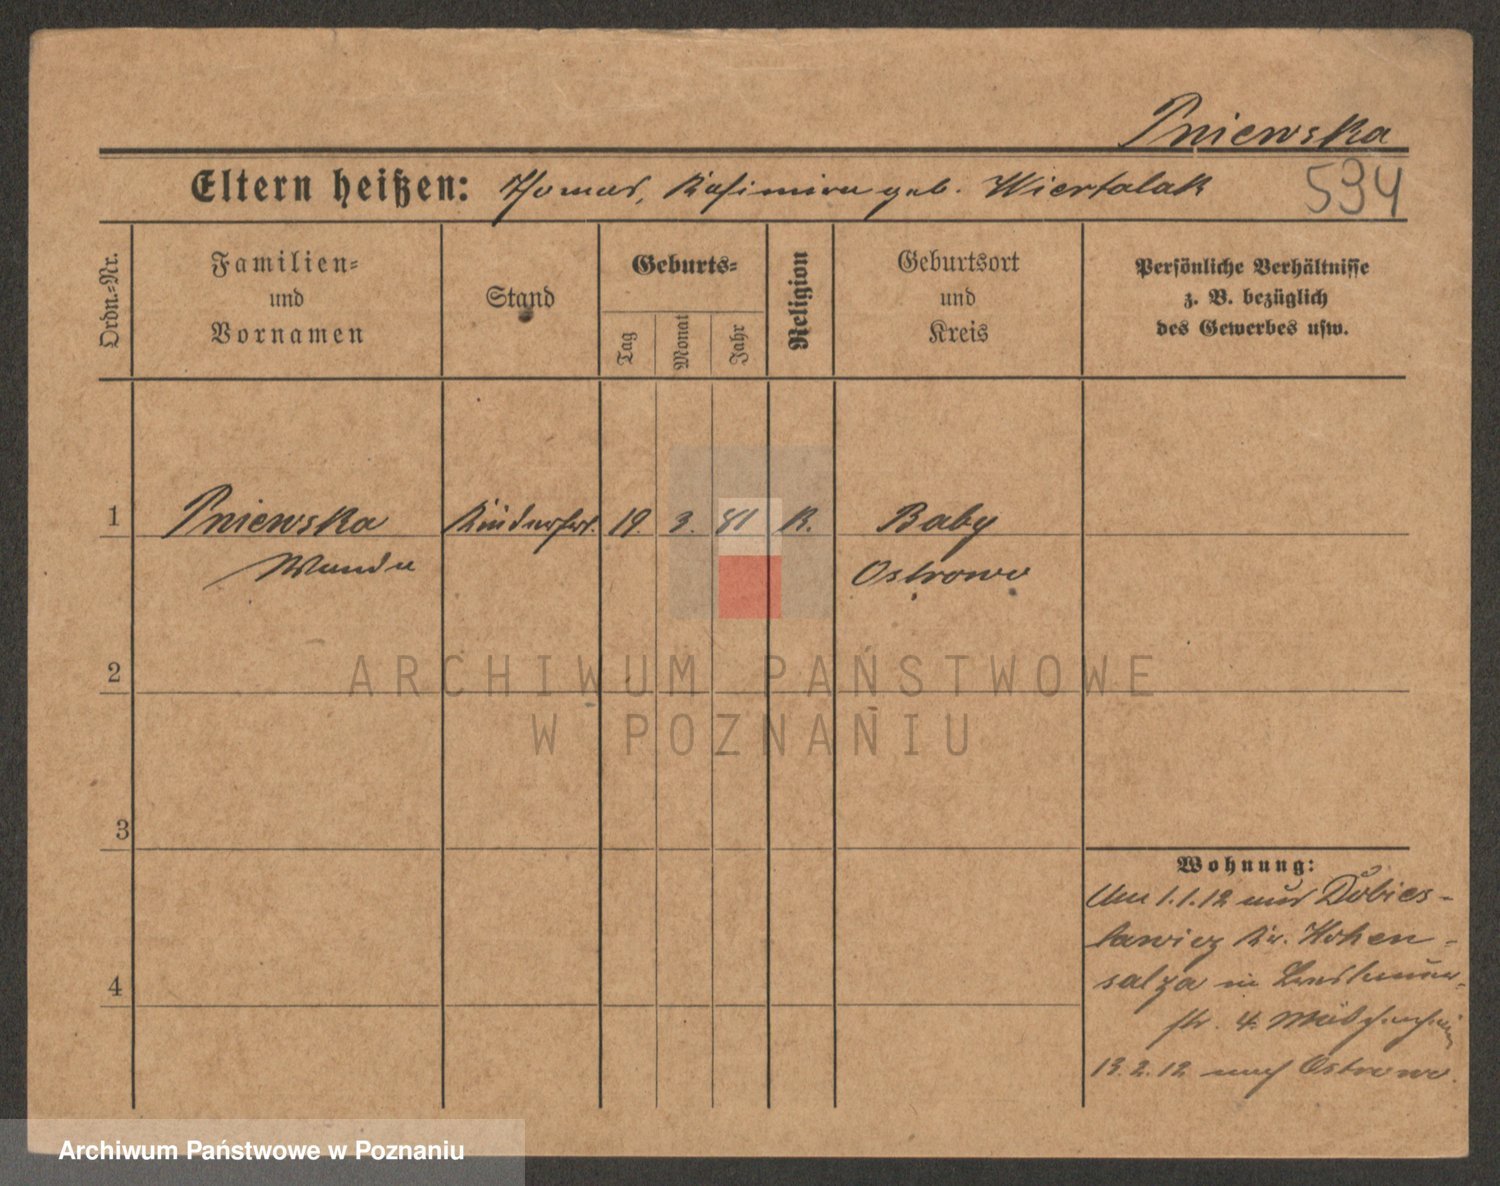 Pniewska
Eltern heißen: Thomas, Kasimira geb. Wiertalak 594
Ordn.-Nr.
Familien-
und
Vornamen
Stand
Geburts-
Tag
Monat
Jahr
Religion
Geburtsort
und
Kreis
Persönliche Verhältnisse
z. B. bezüglich
des Gewerbes usw.
1 Pniewska Kinderfrl. 19. 3. 81 K. Baby
Wanda Ostrowo
ARCHIWUM PAŃSTWOWE
W POZNANIU
2
3
4
Wohnung:
Am 1.1.12 aus Dobies-
lawicz Kr. Hohen-
salza in
str. 4.
13.2.12 nach Ostrowo.
Archiwum Państwowe w Poznaniu